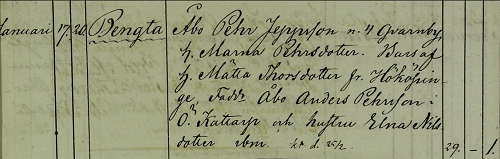 Januari 17. 20. Bengta Åbo Pehr Jeppsson n. 4 Qvarnby,
h. Marna Pehrsdotter. Bars af
h. Mätta Thorsdotter fr. Hököpin-
ge, Fadd. Åbo Anders Pehrson i
Ö. Kattarp och hustru Elna Nils
dotter ibm. 29. – 1.